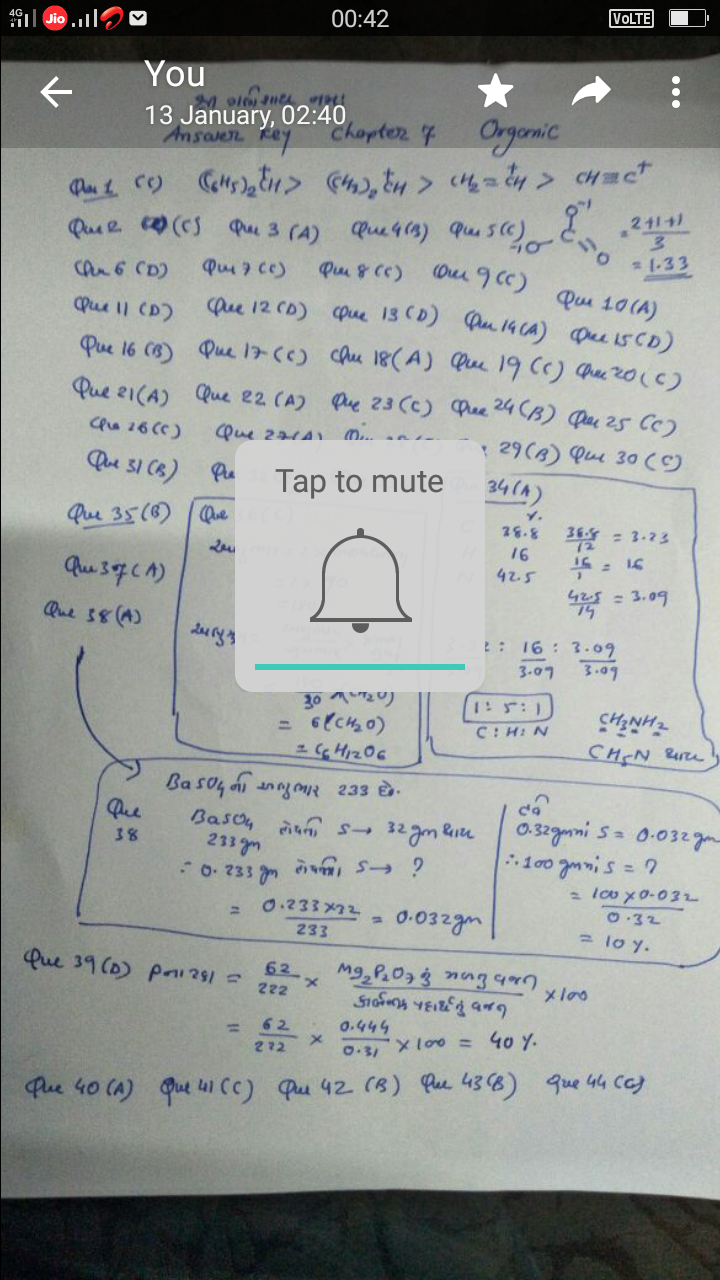 4G Jio 00:42 VoLTE
You
13 January, 02:40
Answer Key Chapter 7 Organic
Que 1 (C) (C6H5)2 C⁺H > (CH3)2 C⁺H > CH2 = C⁺H > CH ≡ C⁺
Que 2 (C) Que 3 (A) Que 4 (B) Que 5 (C) -1O C O-1 O = 2+1+1/3
= 1.33
Que 6 (D) Que 7 (C) Que 8 (C) Que 9 (C) Que 10 (A)
Que 11 (D) Que 12 (D) Que 13 (D) Que 14 (A) Que 15 (D)
Que 16 (B) Que 17 (C) Que 18 (A) Que 19 (C) Que 20 (C)
Que 21 (A) Que 22 (A) Que 23 (C) Que 24 (B) Que 25 (C)
Que 26 (C) Que 27 (A) 29 (B) Que 30 (C)
Que 31 (B) Que
Tap to mute
Que 35 (B)
Que 37 (A)
Que 38 (A)
Que
30 (CH2O)
= 6(CH2O)
= C6H12O6
34 (A)
%
38.8 38.8/12 = 3.23
16 16/1 = 16
42.5 42.5/14 = 3.09
: 16/3.09 : 3.09/3.09
1 : 5 : 1
C : H : N
CH3NH2
CH5N થાય
BaSO4 નો અણુભાર 233 છે.
Que 38
BaSO4 માંથી S → 32 gm થાય
233 gm
∴ 0.233 gm માંથી S → ?
= 0.233×32/233 = 0.032 gm
0.32 gm માં S = 0.032 gm
∴ 100 gm માં S = ?
= 100×0.032/0.32
= 10 %.
Que 39 (D) P ના ટકા = 62/222 × Mg2P2O7 નું વજન/કાર્બનિક પદાર્થનું વજન ×100
= 62/222 × 0.444/0.31 × 100 = 40 %.
Que 40 (A) Que 41 (C) Que 42 (B) Que 43 (B) Que 44 (C)